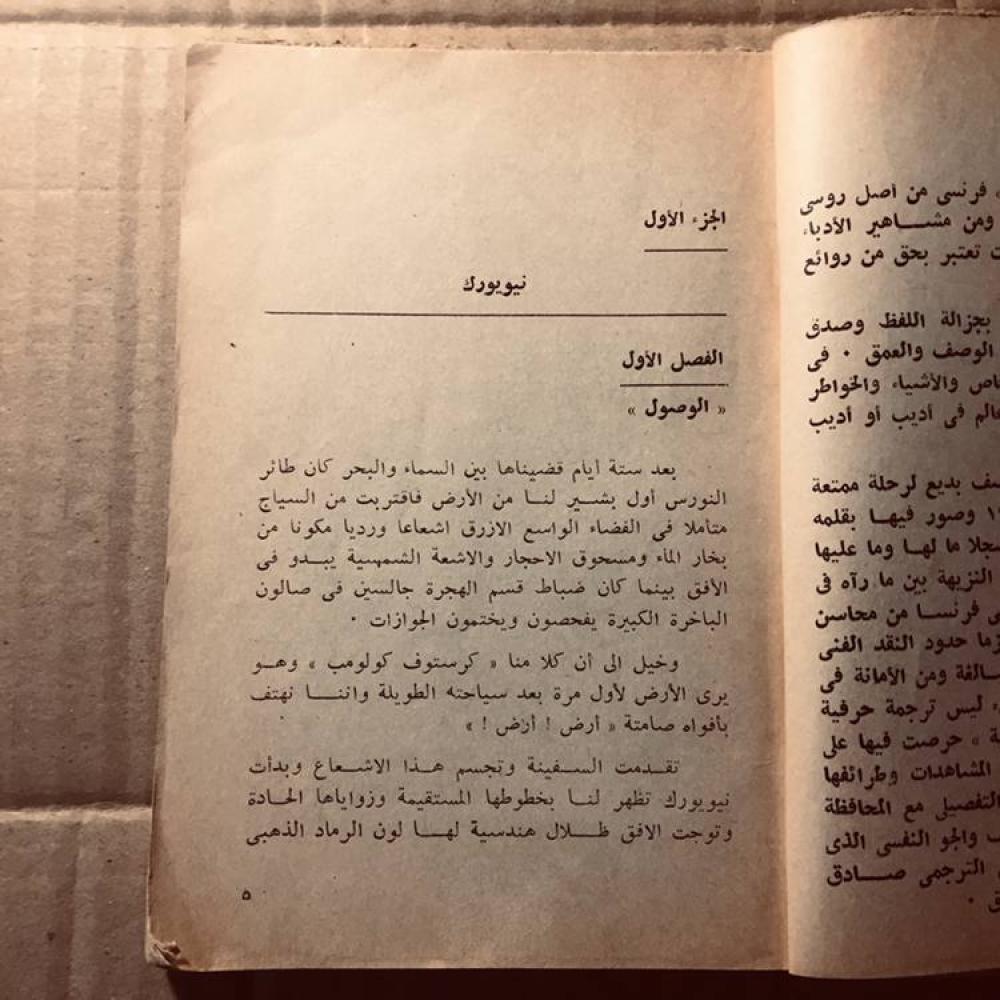 ، فرنسى من أصل روسى
ومن مشاهير الأدباء
ت تعتبر بحق من روائع
بجزالة اللفظ وصدق
الوصف والعمق ٠ فى
اص والأشياء والخواطر
الم فى أديب أو أديب
ف بديع لرحلة ممتعة
وصور فيها بقلمه
جلا ما لها وما عليها
النزيهة بين ما رآه فى
ى فرنسا من محاسن
زما حدود النقد الفنى
الفة ومن الأمانة فى
، ليس ترجمة حرفية
ة » حرصت فيها على
المشاهدات وطرائفها
التفصيلى مع المحافظة
والجو النفسى الذى
الترجمى صادق
ق ٠
الجزء الأول
نيويورك
الفصل الأول
« الوصول »
بعد ستة أيام قضيناها بين السماء والبحر كان طائر
النورس أول بشير لنا من الأرض فاقتربت من السياج
متأملا فى الفضاء الواسع الازرق اشعاعا ورديا مكونا من
بخار الماء ومسحوق الاحجار والاشعة الشمسية يبدو فى
الأفق بينما كان ضباط قسم الهجرة جالسين فى صالون
الباخرة الكبيرة يفحصون ويختمون الجوازات ٠
وخيل الى أن كلا منا « كرستوف كولومب » وهو
يرى الأرض لأول مرة بعد سياحته الطويلة واننا نهتف
بأفواه صامتة « أرض ! أرض ! »
تقدمت السفينة وتجسم هذا الاشعاع وبدأت
نيويورك تظهر لنا بخطوطها المستقيمة وزواياها الحادة
وتوجت الافق ظلال هندسية لها لون الرماد الذهبى
٥